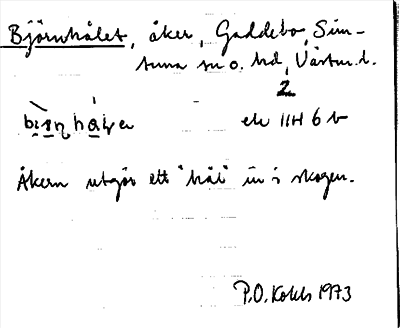 Björnhålet, åker, Gaddebo, Sim-
tuna sn o. hd, Västm. l.
2
ek 11H 6 b
Åkern utgör ett "hål" in i skogen.
P.O. Kolds 1973